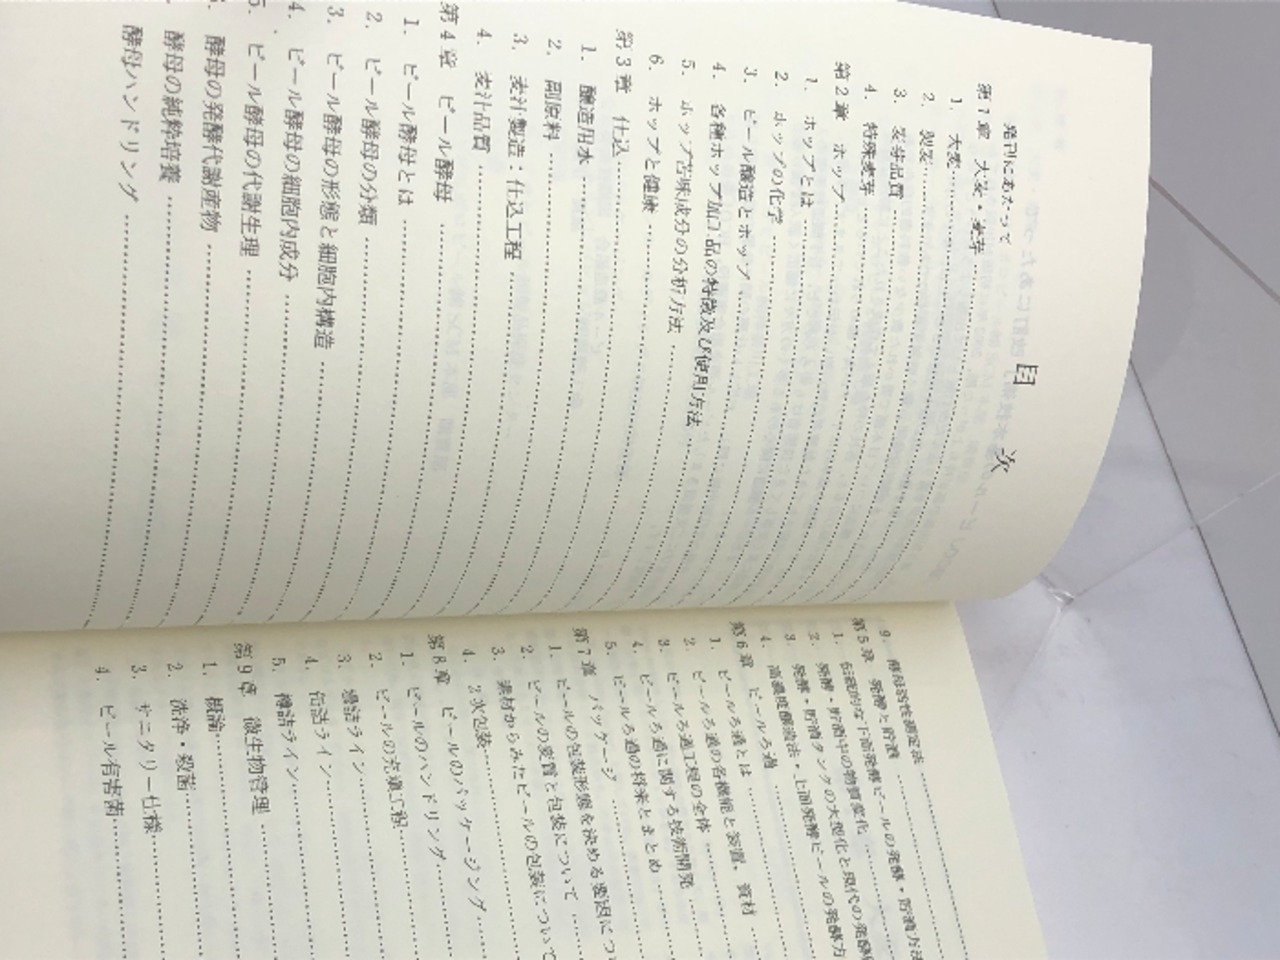 目次
発刊にあたって
第1章 大麦・麦芽
1. 大麦
2. 製麦
3. 麦芽品質
4. 特殊麦芽
第2章 ホップ
1. ホップとは
2. ホップの化学
3. ビール醸造とホップ
4. 各種ホップ加工品の特徴及び使用方法
5. ホップ苦味成分の分析方法
6. ホップと健康
第3章 仕込
1. 醸造用水
2. 副原料
3. 麦汁製造:仕込工程
4. 麦汁品質
第4章 ビール酵母
1. ビール酵母とは
2. ビール酵母の分類
3. ビール酵母の形態と細胞内構造
4. ビール酵母の細胞内成分
5. ビール酵母の代謝生理
酵母の発酵代謝産物
酵母の純粋培養
酵母ハンドリング
9. 酵母活性測定法
第5章 発酵と貯酒
1. 伝統的な下面発酵ビールの発酵・貯酒方法
2. 発酵・貯酒中の物質変化
3. 発酵・貯酒タンクの大型化と現代の発酵
4. 高濃度醸造法・上面発酵ビールの発酵方
第6章 ビールろ過
1. ビールろ過とは
2. ビールろ過の各機能と装置、資材
3. ビールろ過工程の全体
4. ビールろ過に関する技術開発
5. ビールろ過の将来とまとめ
第7章 パッケージ
1. ビールの包装形態を決める要因につ
2. ビールの変質と包装について
3. 素材からみたビールの包装について
4. 2次包装
第8章 ビールのパッケージング
1. ビールのハンドリング
2. ビールの充填工程
3. 壜詰ライン
4. 缶詰ライン
5. 樽詰ライン
第9章 微生物管理
1. 概論
2. 洗浄・殺菌
3. サニタリー仕様
4. ビール有害菌